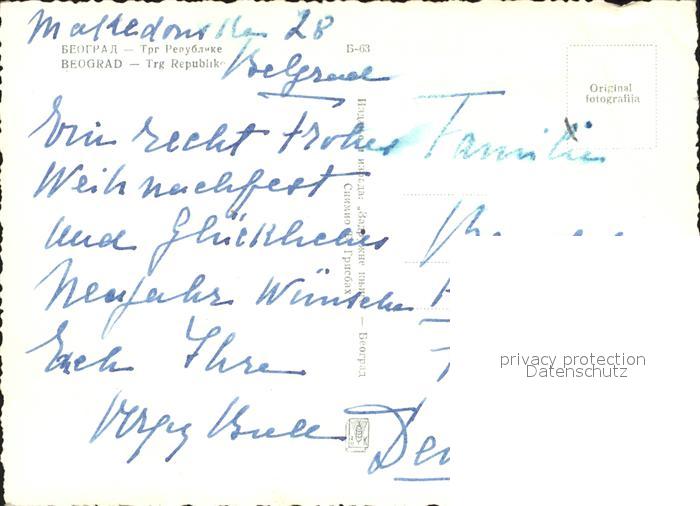 Makedonska 28
БЕОГРАД — Трг Републике
BEOGRAD — Trg Republike
Б-63
Belgrad
Original
fotografija
Ein recht Frohes
Weihnachfest
und Glückliches
Neujahr Wünschen
Euch Ihre
Familie
Издавачко „Задружне књиге“ — Београд
Снимио Грисбах
De
privacy protection
Datenschutz